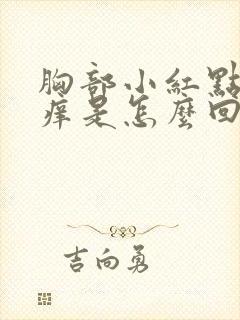 胸部小紅點
癢是怎麼回
吉向勇